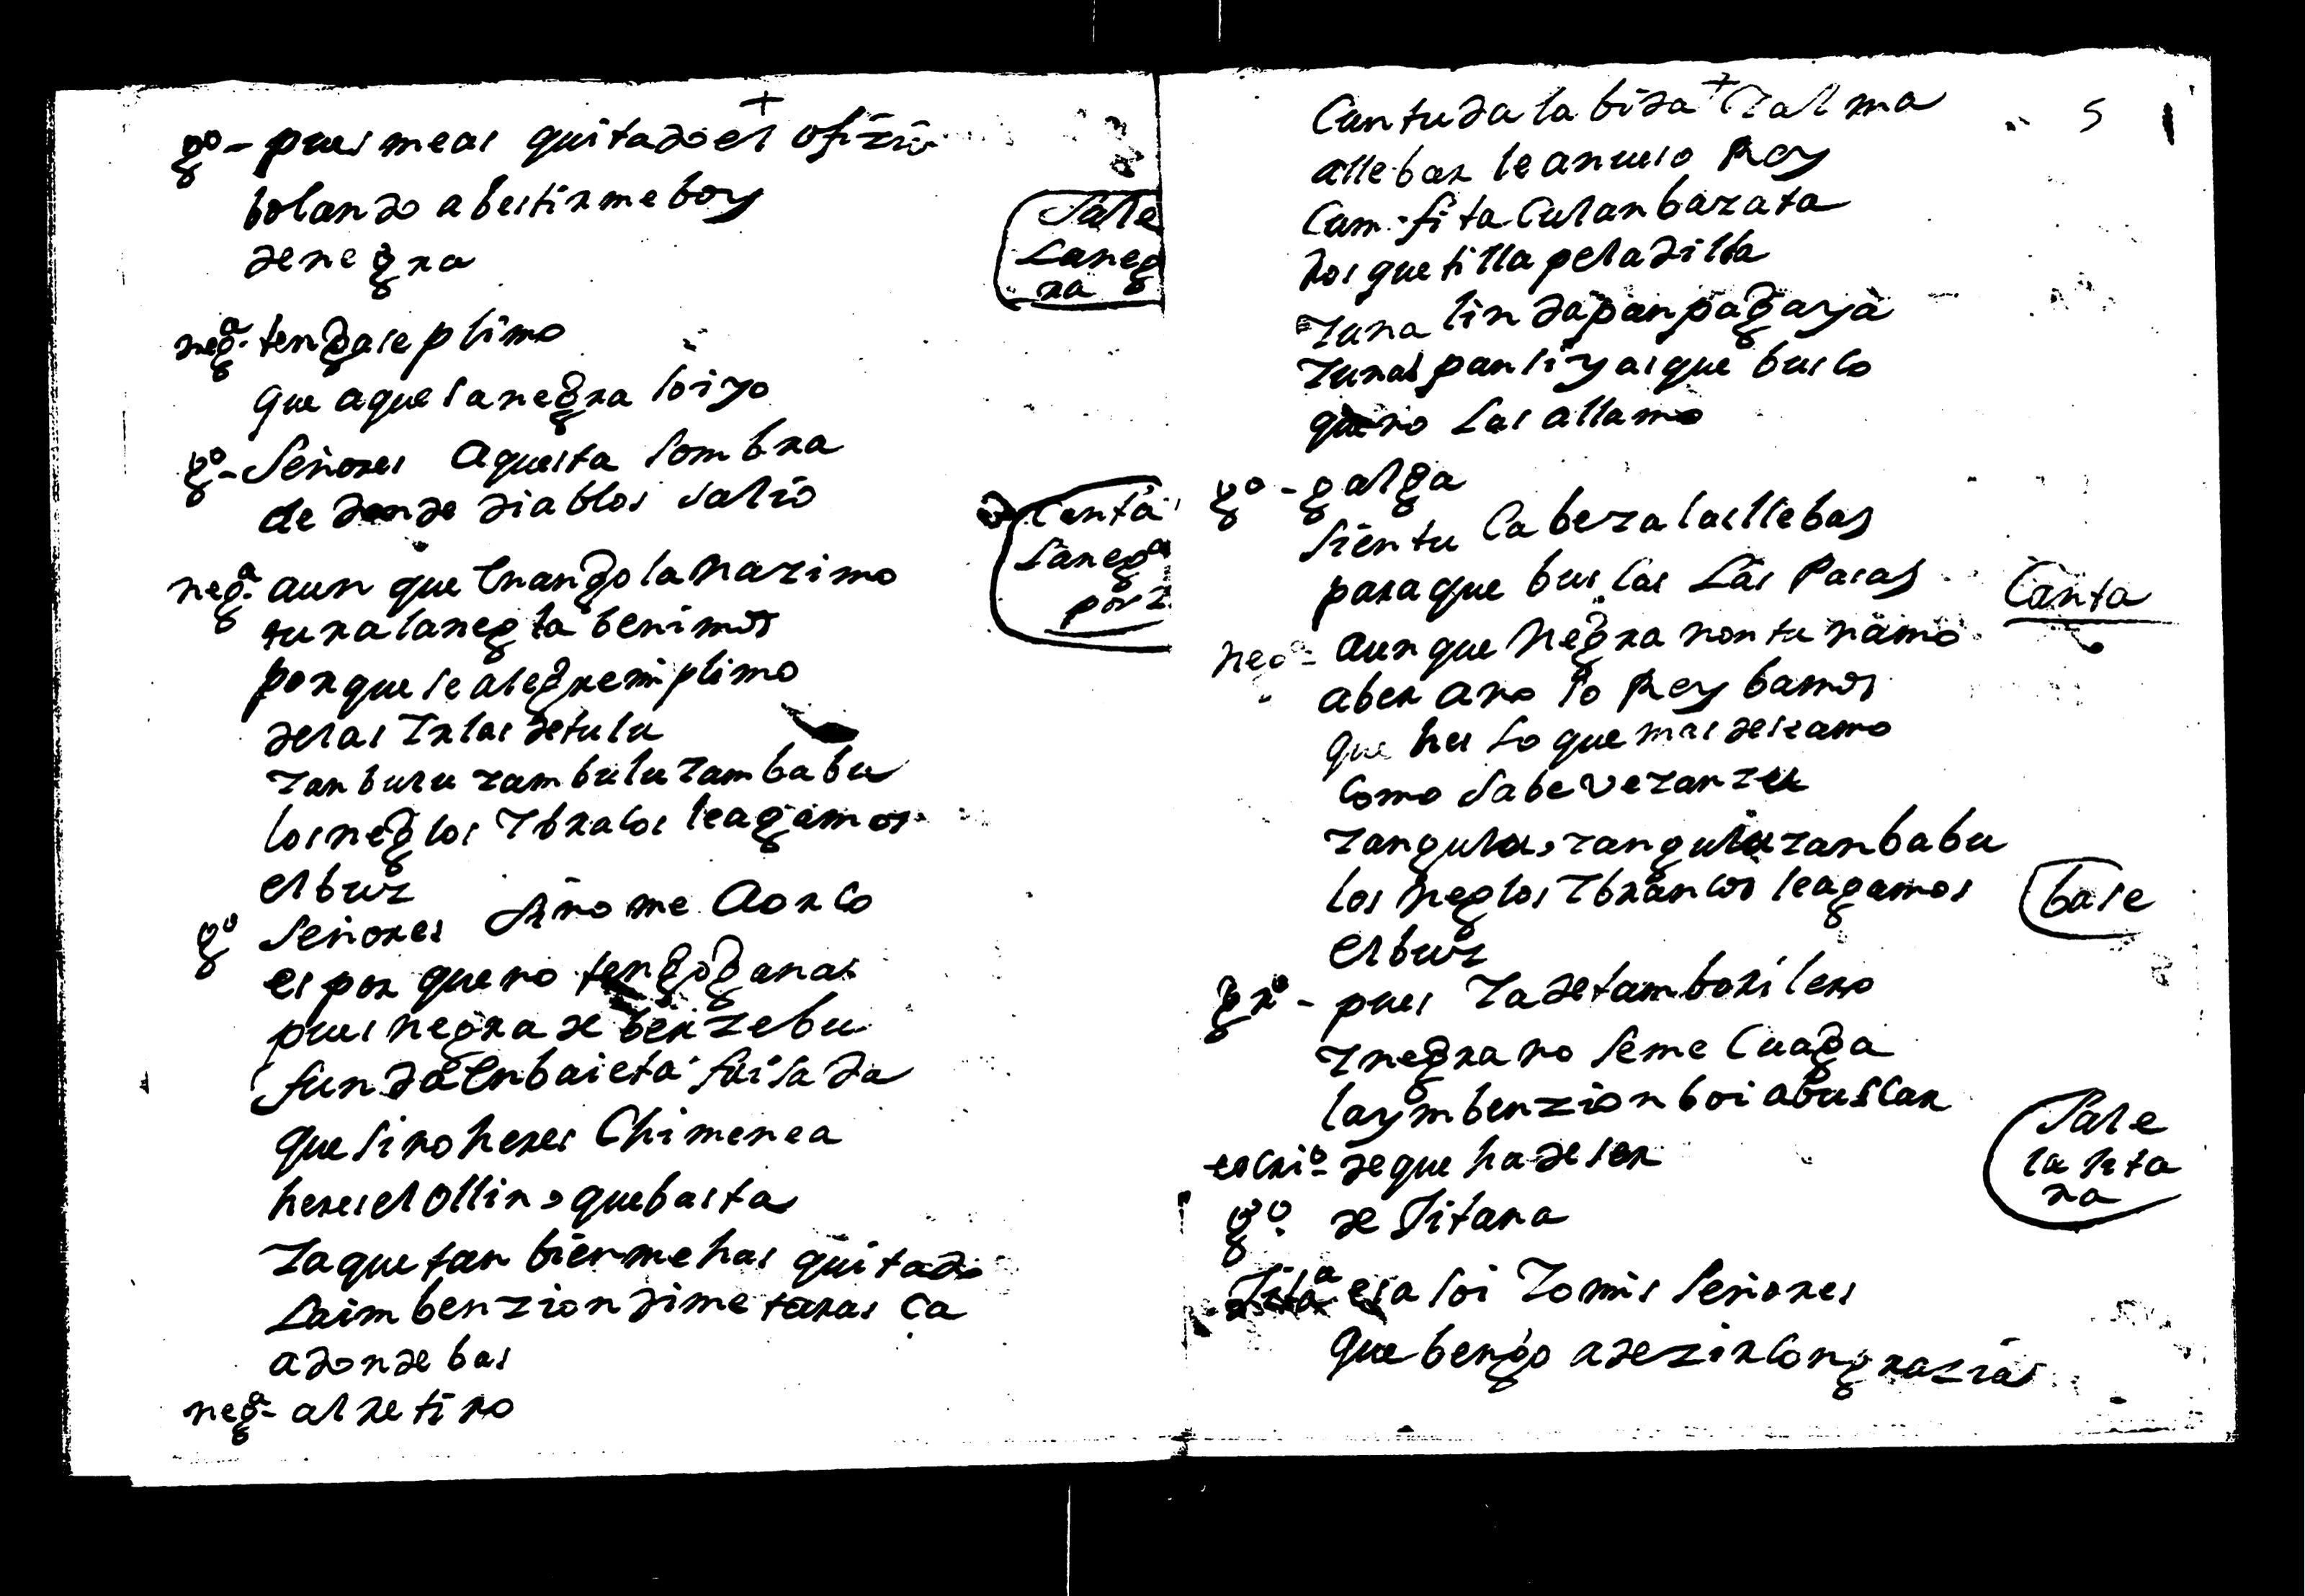 +
go - pues meas quitado el ofizio
bolando a bestirme boy
de negra
Sale
La neg
ra
nega- tengase plimo
que aquesa negra soi yo
go - Señores aquesta sombra
de donde diablos salio
Canta
La nega
por
nega aun que en angola nazimo
tura la negla benimos
porque se alegre mi plimo
de las Islas de tulu
zanbulu zambulu zambabu
los neglos y bralos leagamos
el buz
go Señores si no me aorco
es por que no tengo ganas
pues negra de berzebu
funda en baieta frisada
que si no heres chimenea
heres el ollin, que basta
ya que tan bien me has quitado
la imbenzion dime taras ca
adonde bas
nega- al retiro
+
Con tuda la bida y al ma
5
allebar le a nueso Rey
Com-fita culanbazata
Rosquetilla peladilla
y una linda pan pagaya
y unas panliyas que busco
que no las allamo
go - galga
si en tu cabeza las llebas
para que buscas Las Pasas
Canta
nega- aunque negra non tu namo
aber a no so Rey bamos
que hes lo que mas deseamo
como sabe vezanzu
zangulu, zangulu zanbabu
los neglos y brancos leagamos
el buz
base
gro - pues ya de tamborilero
y negra no se me cuaga
la ymbenzion boi a buscar
escrio- de que ha de ser
Sale
la Jita
na
go. de Jitana
Jita esa soi yo mis señores
que bengo a dezir con grazias